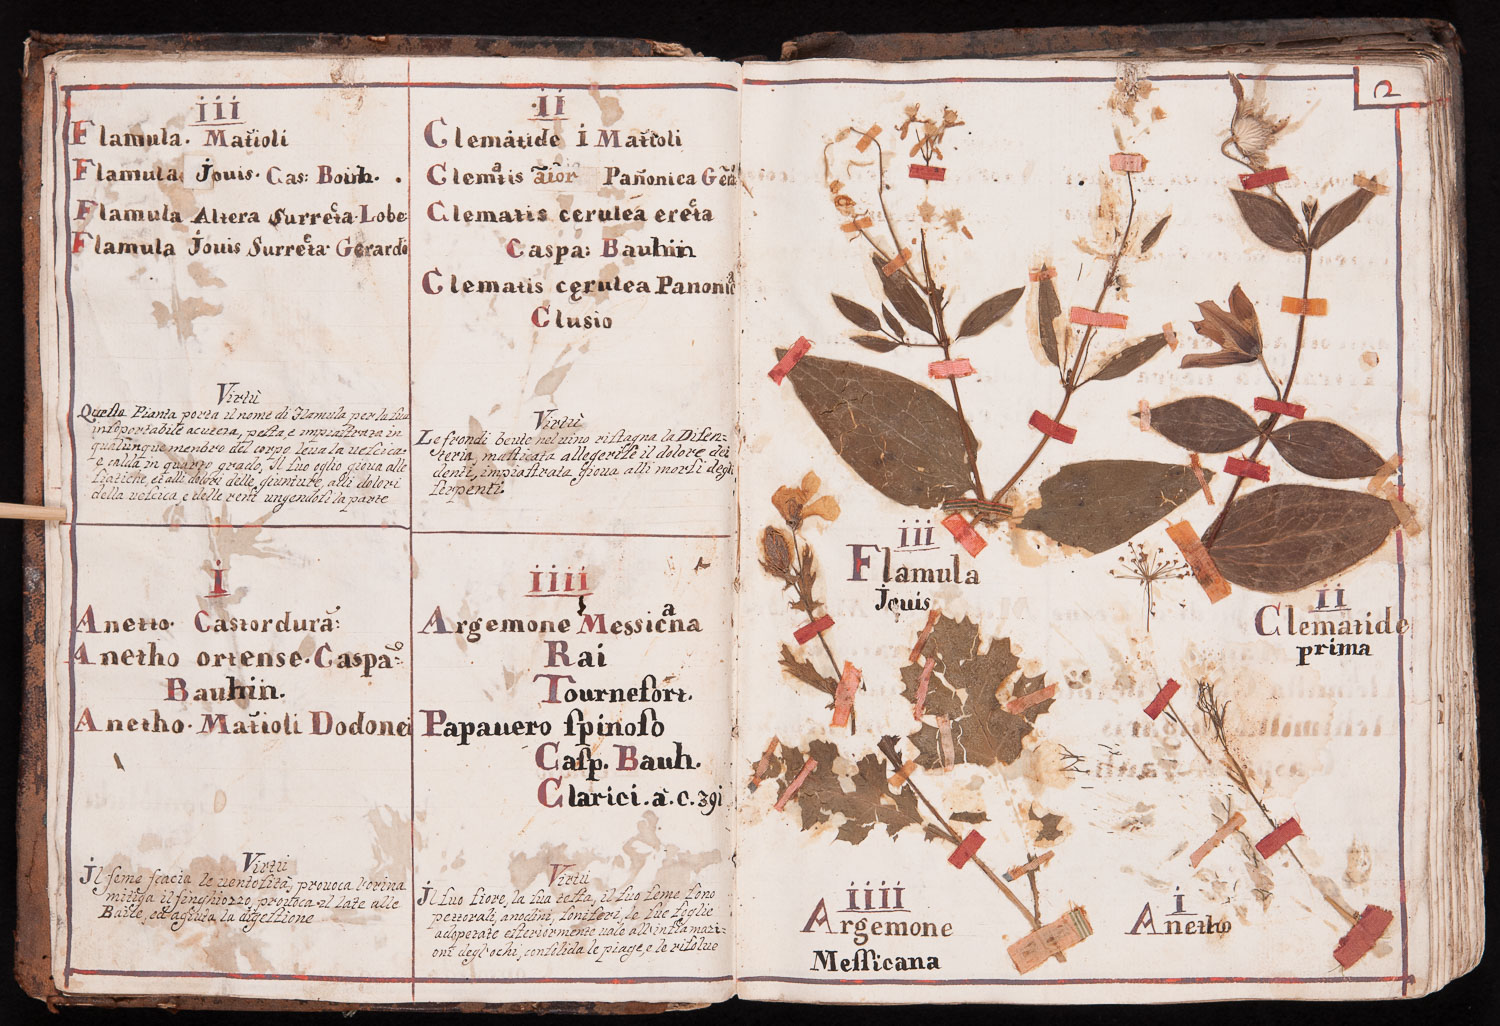 iii
Flamula. Matioli
Flamula Jouis. Cas: Bouh.
Flamula Altera Surrecta Lobe
Flamula Jouis Surrecta Gerardo
Virtù
Questa Pianta porta il nome di Flamula per la sua
insoportabile acutezza, pesta, e impiastrata in
qualunque membro del corpo leua la vescica
è calda in quarto grado, Il suo oglio gioua alle
siatiche, et alli dolori delle giunture, alli dolori
della vescica, e delle reni ungendosi la parte
II
Clematide i Matioli
Clematis Panonica
Clematis cerulea erecta
Caspa: Bauhin
Clematis cęrulea Panonica
Clusio
Virtù
Le frondi beute nel uino ristagna la Disen=
teria, masticata allegerisse il dolore dei
denti, impiastrata gioua alli morsi degl
serpenti.
i
Anetto. Castordurã:
Anetho ortense. Caspa:
Bauhin.
Anetho. Matioli Dodonei
Virtù
Il seme scacia le uentosità, prouoca l'orina
mitiga il singhiozzo, prouoca il late alle
Baile, ed agiuta la digestione
iiii
Argemone Messicana
Rai
Tournefort.
Papauero spinoso
Casp. Bauh.
Clarici. a. c. 391
Virtù
Il suo fiore, la sua testa, il suo seme sono
pettorali, anodini, soniferi, le sue foglie
adoperate esteriormente uale all'inflamazi=
oni degl'ochi, consolida le piage, e le risolue
2
iii
Flamula
Jouis
II
Clematide
prima
iiii
Argemone
Messicana
i
Anetho